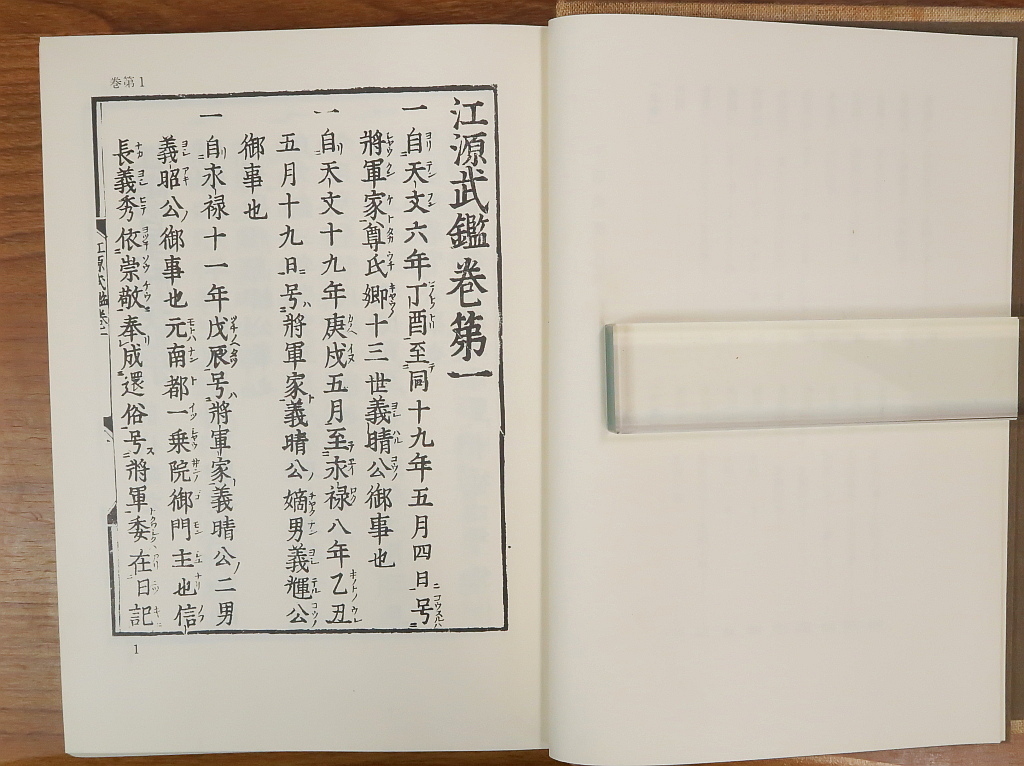 巻第1
江源武鑑卷第一
一自天文六年丁酉至同十九年五月四日号
將軍家尊氏卿十三世義晴公御事也
一自天文十九年庚戌五月至永禄八年乙丑
五月十九日号將軍家義晴公嫡男義輝公
御事也
一自永禄十一年戊辰号將軍家義晴公二男
義昭公御事也元南都一乗院御門主也信
長義秀依崇敬奉成還俗号將軍委在日記
江源武鑑卷一
1